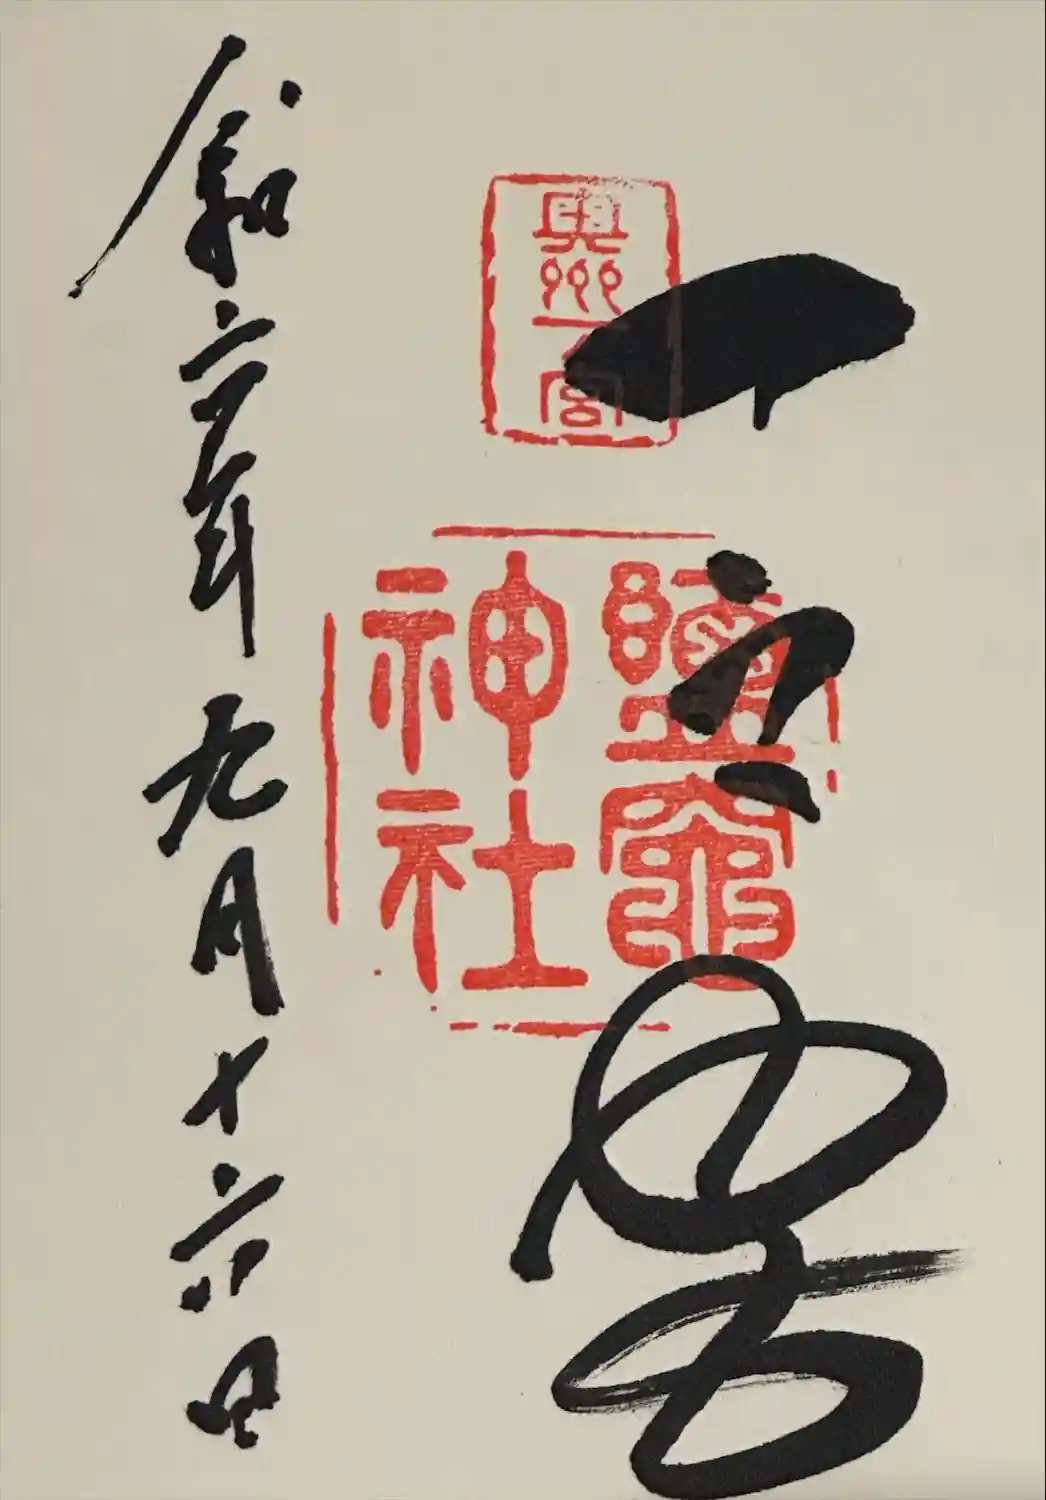 奥州一宮
鹽竈
神社
令和六年九月十六日